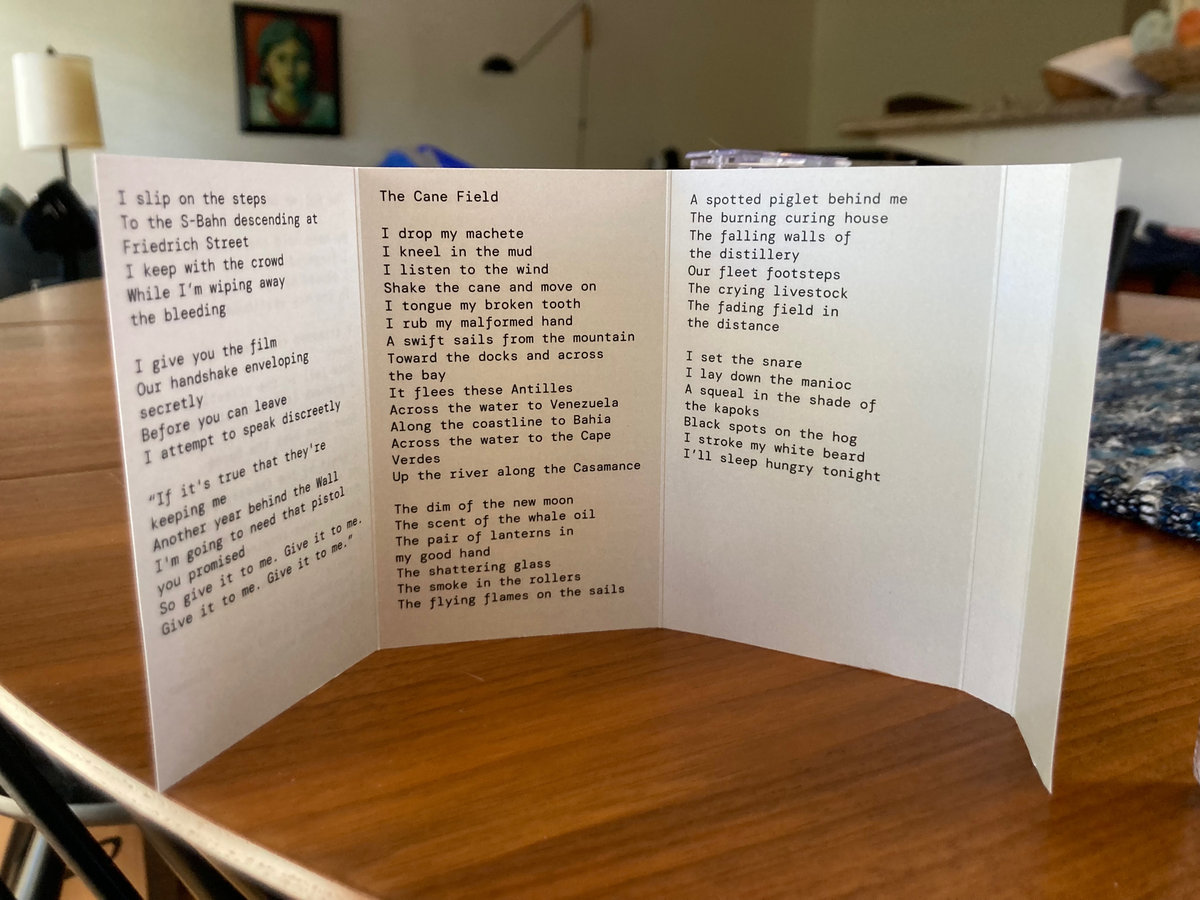 I slip on the steps
To the S-Bahn descending at
Friedrich Street
I keep with the crowd
While I'm wiping away
the bleeding
I give you the film
Our handshake enveloping
secretly
Before you can leave
I attempt to speak discreetly
"If it's true that they're
keeping me
Another year behind the Wall
I'm going to need that pistol
you promised
So give it to me. Give it to me.
Give it to me. Give it to me."
The Cane Field
I drop my machete
I kneel in the mud
I listen to the wind
Shake the cane and move on
I tongue my broken tooth
I rub my malformed hand
A swift sails from the mountain
Toward the docks and across
the bay
It flees these Antilles
Across the water to Venezuela
Along the coastline to Bahia
Across the water to the Cape
Verdes
Up the river along the Casamance
The dim of the new moon
The scent of the whale oil
The pair of lanterns in
my good hand
The shattering glass
The smoke in the rollers
The flying flames on the sails
A spotted piglet behind me
The burning curing house
The falling walls of
the distillery
Our fleet footsteps
The crying livestock
The fading field in
the distance
I set the snare
I lay down the manioc
A squeal in the shade of
the kapoks
Black spots on the hog
I stroke my white beard
I'll sleep hungry tonight